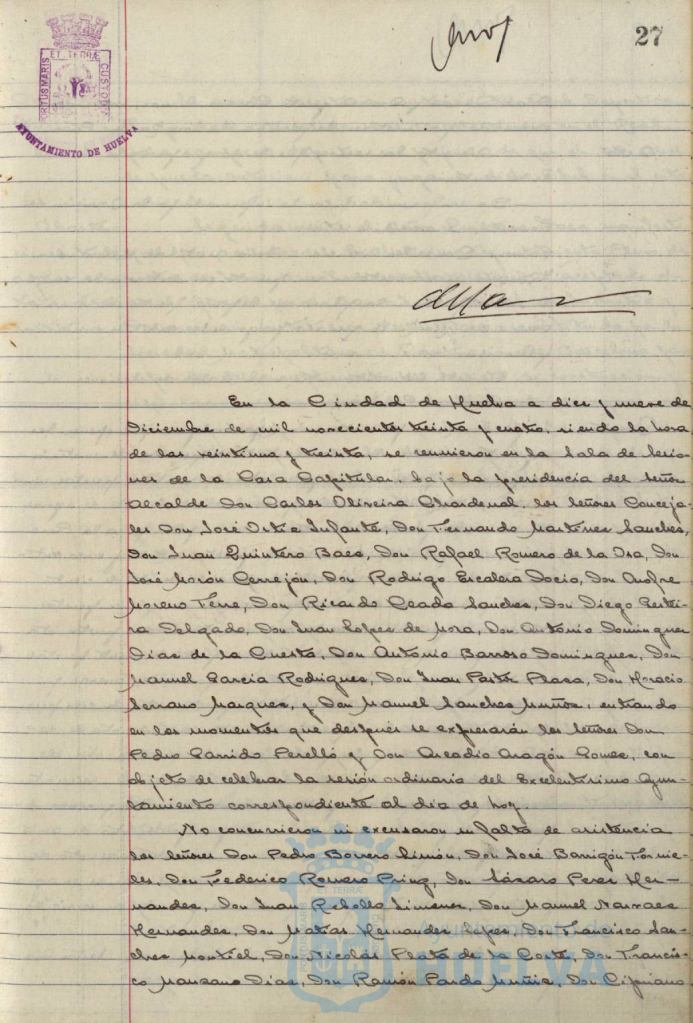 27
PORTUS MARIS ET TERRÆ CUSTODIA
AYUNTAMIENTO DE HUELVA
En la Ciudad de Huelva a diez y nueve de
Diciembre de mil novecientos treinta y cuatro, siendo la hora
de las veintiuna y treinta, se reunieron en la Sala de Sesio-
nes de la Casa Capitular, bajo la presidencia del Señor
Alcalde Don Carlos Oliveira Chardenal, los Señores Conceja-
les Don José Ortiz Infante, Don Fernando Martinez Sanchez,
Don Juan Quintero Baez, Don Rafael Romero de la Osa, Don
José Morón Cerrejón, Don Rodrigo Escalera Socio, Don Onofre
Moreno Terre, Don Ricardo Ceada Sanchez, Don Diego
Delgado, Don Juan Lopez de Mora, Don Antonio Dominguez
Diaz de la Cuesta, Don Antonio Barroso Dominguez, Don
Manuel Garcia Rodriguez, Don Juan Pastor Plaza, Don Horacio
Serrano Marquez, y Don Manuel Sanchez Muñoz, entrando
en los momentos que después se expresarán los señores Don
Pedro Garrido Perelló y Don Arcadio Aragón Gomez, con
objeto de celebrar la sesión ordinaria del Excelentisimo Ayun-
tamiento correspondiente al dia de hoy.
No concurrieron ni excusaron su falta de asistencia
los Señores Don Pedro Borrero Limón, Don José Barrigón Tornie-
les, Don Federico Romero Pring, Don Lázaro Perez Her-
nandez, Don Juan Rebollo Jimenez, Don Manuel Narvaez
Hernandez, Don Matias Hernandez Lopez, Don Francisco San-
chez Montiel, Don Nicolás Plata de la Corte, Don Francis-
co Manzano Diaz, Don Ramón Pardo Muñiz, Don Cipriano
Ayuntamiento
HUELVA